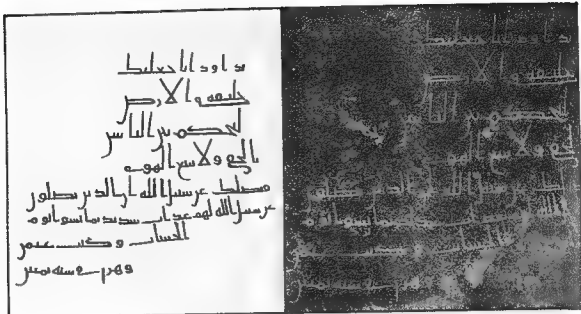 يداود انا جعلنك
خليفه في الارض
لتحكم بين الناس
بالحق ولا تتبع الهوى
فيضلك عن سبيل الله ان الذين يضلون
عن سبيل الله لهم عذاب شديد بما نسوا يوم
الحساب وكتب
في سنه ثمنين